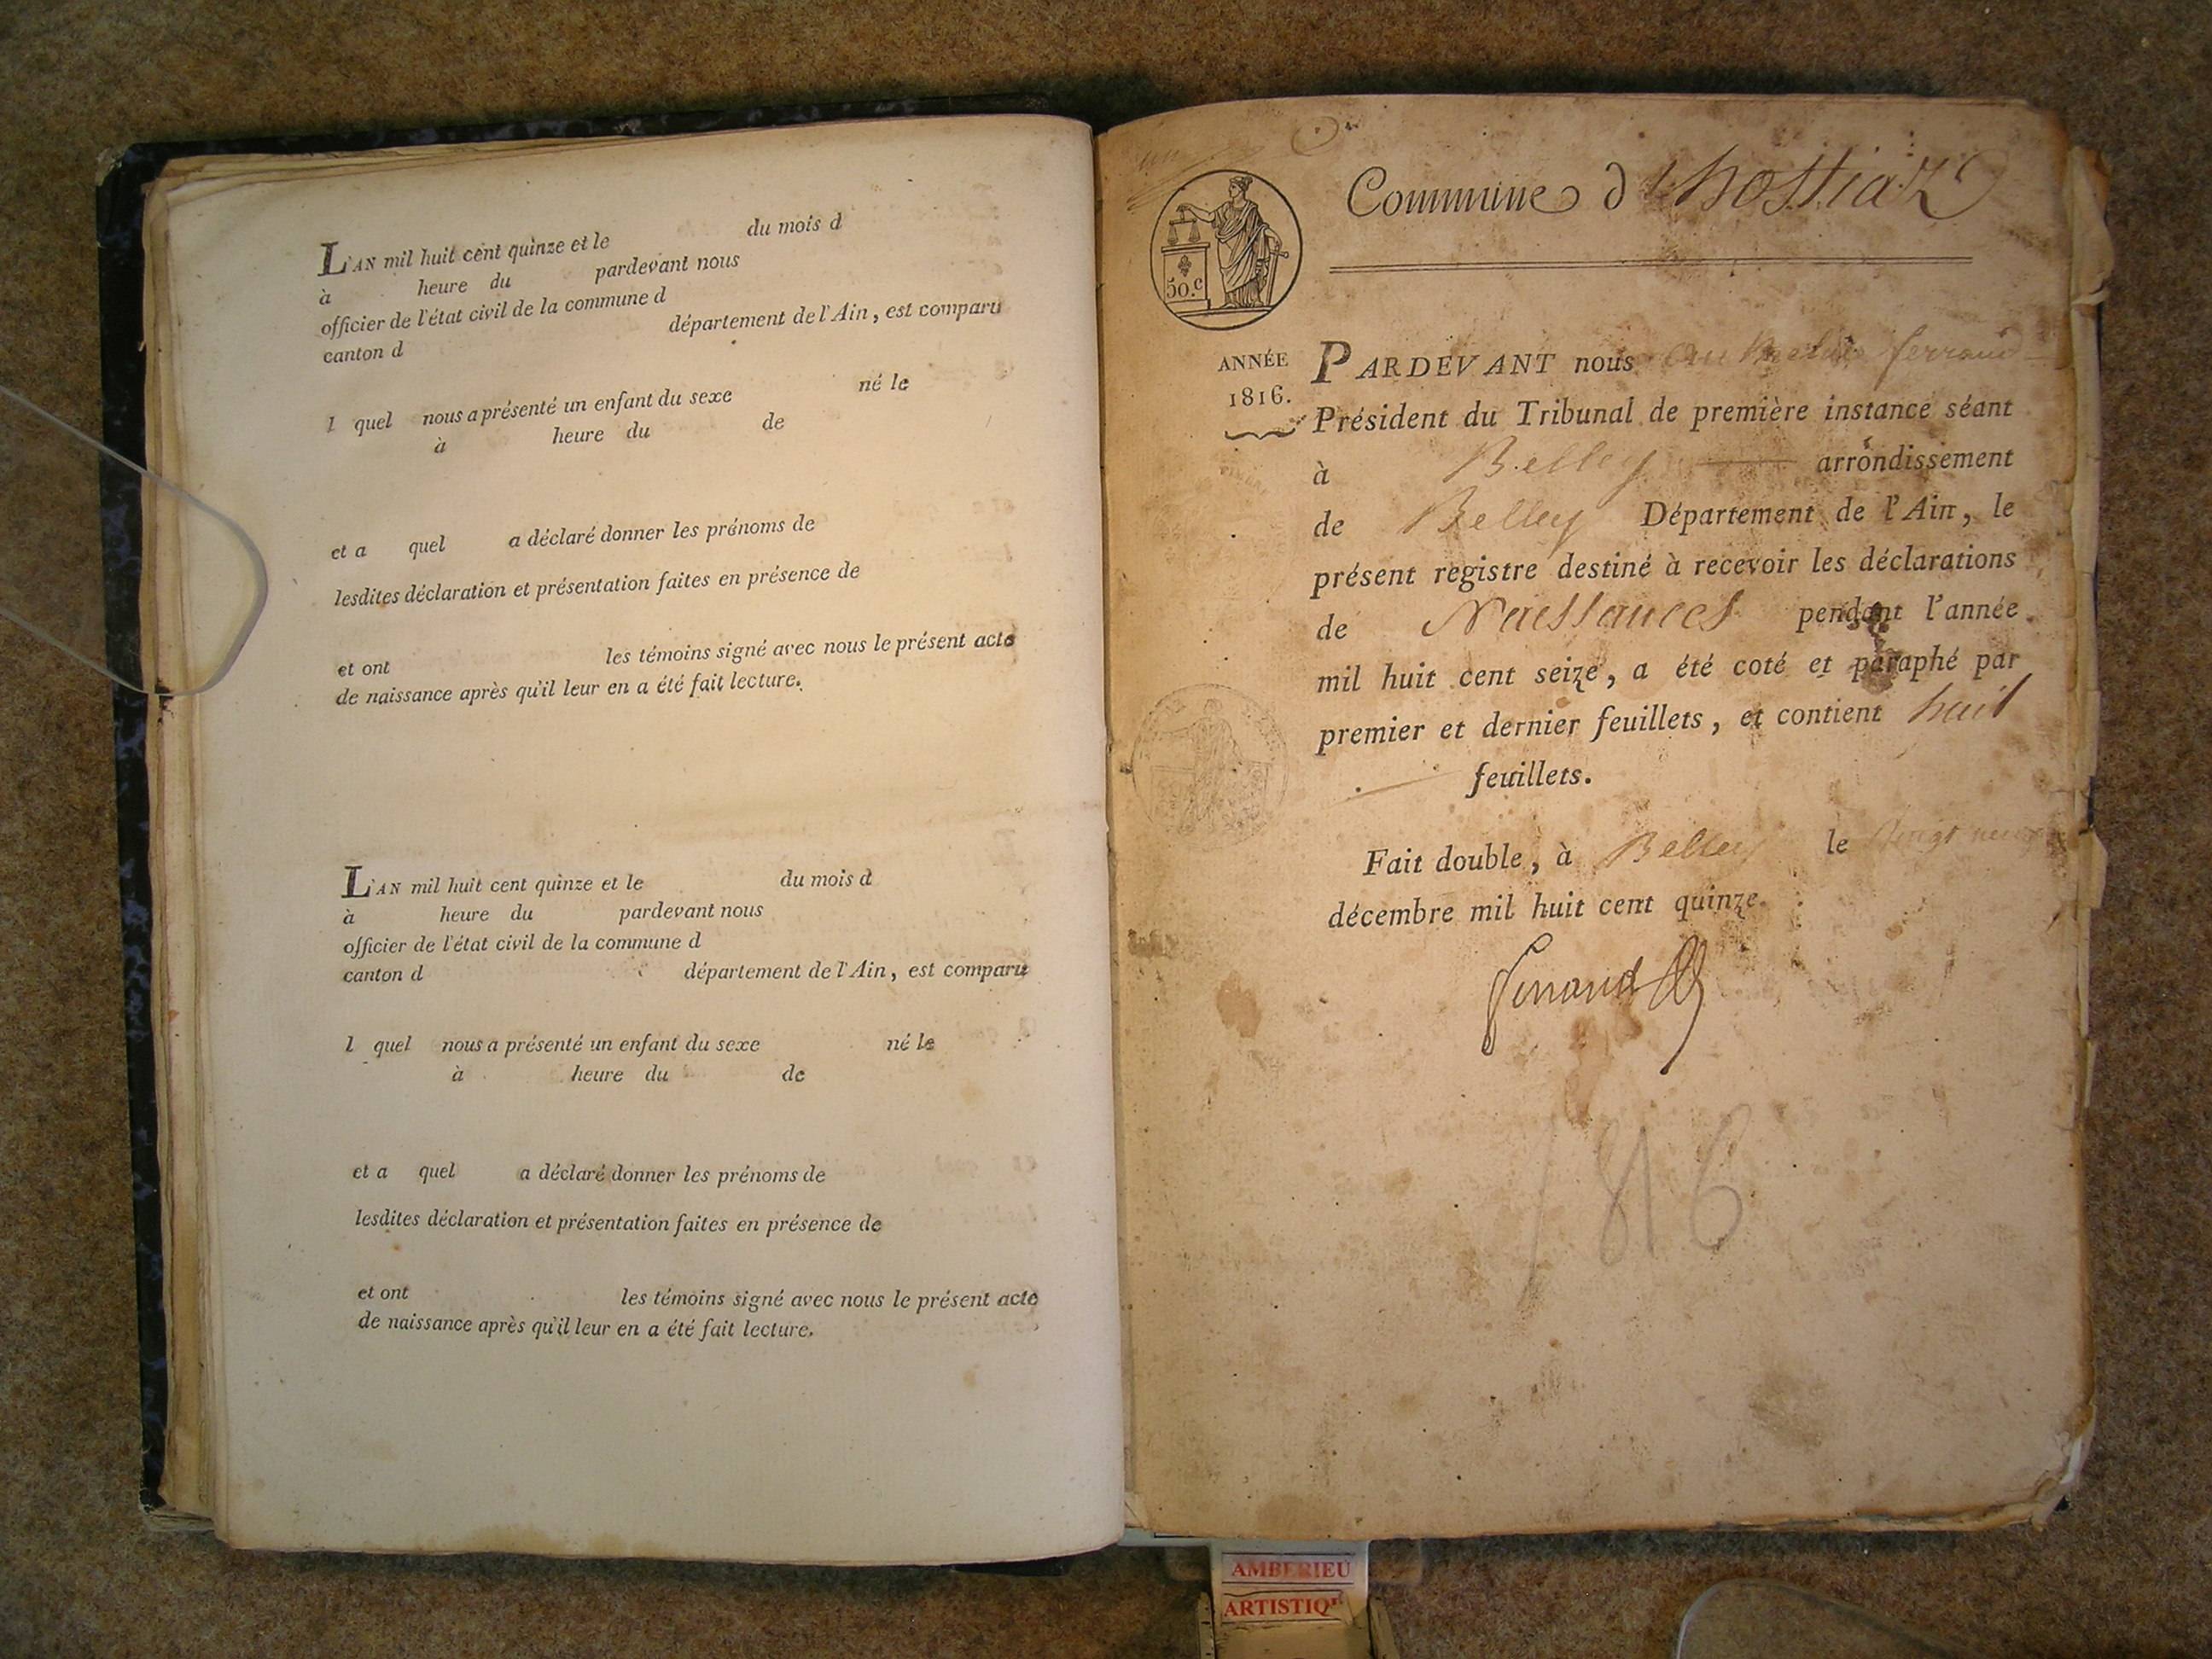 L'AN mil huit cent quinze et le du mois d
à heure du pardevant nous
officier de l'état civil de la commune d
canton d département de l'Ain, est comparu
l quel nous a présenté un enfant du sexe né le
à heure du de
et a quel a déclaré donner les prénoms de
lesdites déclaration et présentation faites en présence de
et ont les témoins signé avec nous le présent acte
de naissance après qu'il leur en a été fait lecture.
L'AN mil huit cent quinze et le du mois d
à heure du pardevant nous
officier de l'état civil de la commune d
canton d département de l'Ain, est comparu
l quel nous a présenté un enfant du sexe né le
à heure du de
et a quel a déclaré donner les prénoms de
lesdites déclaration et présentation faites en présence de
et ont les témoins signé avec nous le présent acte
de naissance après qu'il leur en a été fait lecture.
un
50.c
Commune d'hostiaz
ANNÉE
1816.
PARDEVANT nous ferrand
Président du Tribunal de première instance séant
à Belley arrondissement
de Belley Département de l'Ain, le
présent registre destiné à recevoir les déclarations
de Naissances pendant l'année
mil huit cent seize, a été coté et paraphé par
premier et dernier feuillets, et contient huit
feuillets.
Fait double, à Belley le vingt neuf
décembre mil huit cent quinze.
ferrand
1816
AMBERIEU
ARTISTIQ